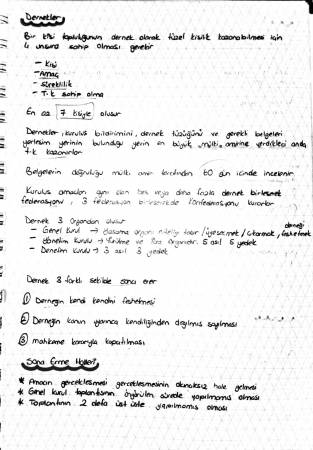 Dernekler
Bir kişi topluluğunun dernek olarak tüzel kişilik kazanabilmesi için
4 unsura sahip olması gerekir
- Kişi
- Amaç
- Süreklilik
- T.k sahip olma
En az 7 kişiyle oluşur
Dernekler, kuruluş bildirimini, dernek tüzüğünü ve gerekli belgeleri
yerleşim yerinin bulunduğu yerin en büyük mülki amirine verdikleri anda
t.k kazanırlar
Belgelerin doğruluğu mülki amir tarafından 60 gün içinde incelenir
Kuruluş amaçları aynı olan veya daha fazla dernek birleşmek
federasyonu, 3 federasyon konfederasyonu kurarlar
Dernek 3 Organdan oluşur
- Genel Kurul → organı niteliği taşır / üye seçmek / çıkarmak, derneği feshetmek
- Yönetim Kurulu → Yürütme ve organıdır. 5 asıl 5 yedek
- Denetim Kurulu → 3 asıl 3 yedek
Dernek 3 farklı şekilde sona erer
① Derneğin kendi kendini feshetmesi
② Derneğin kanun uyarınca kendiliğinden dağılmış sayılması
③ mahkeme kararıyla kapatılması
Sona Erme Halleri
* Amacın gerçekleşmesi gerçekleşmesinin olanaksız hale gelmesi
* Genel kurul toplantısının öngörülen sürede yapılmamış olması
* Toplantının 2 defa üst üste yapılmamış olması